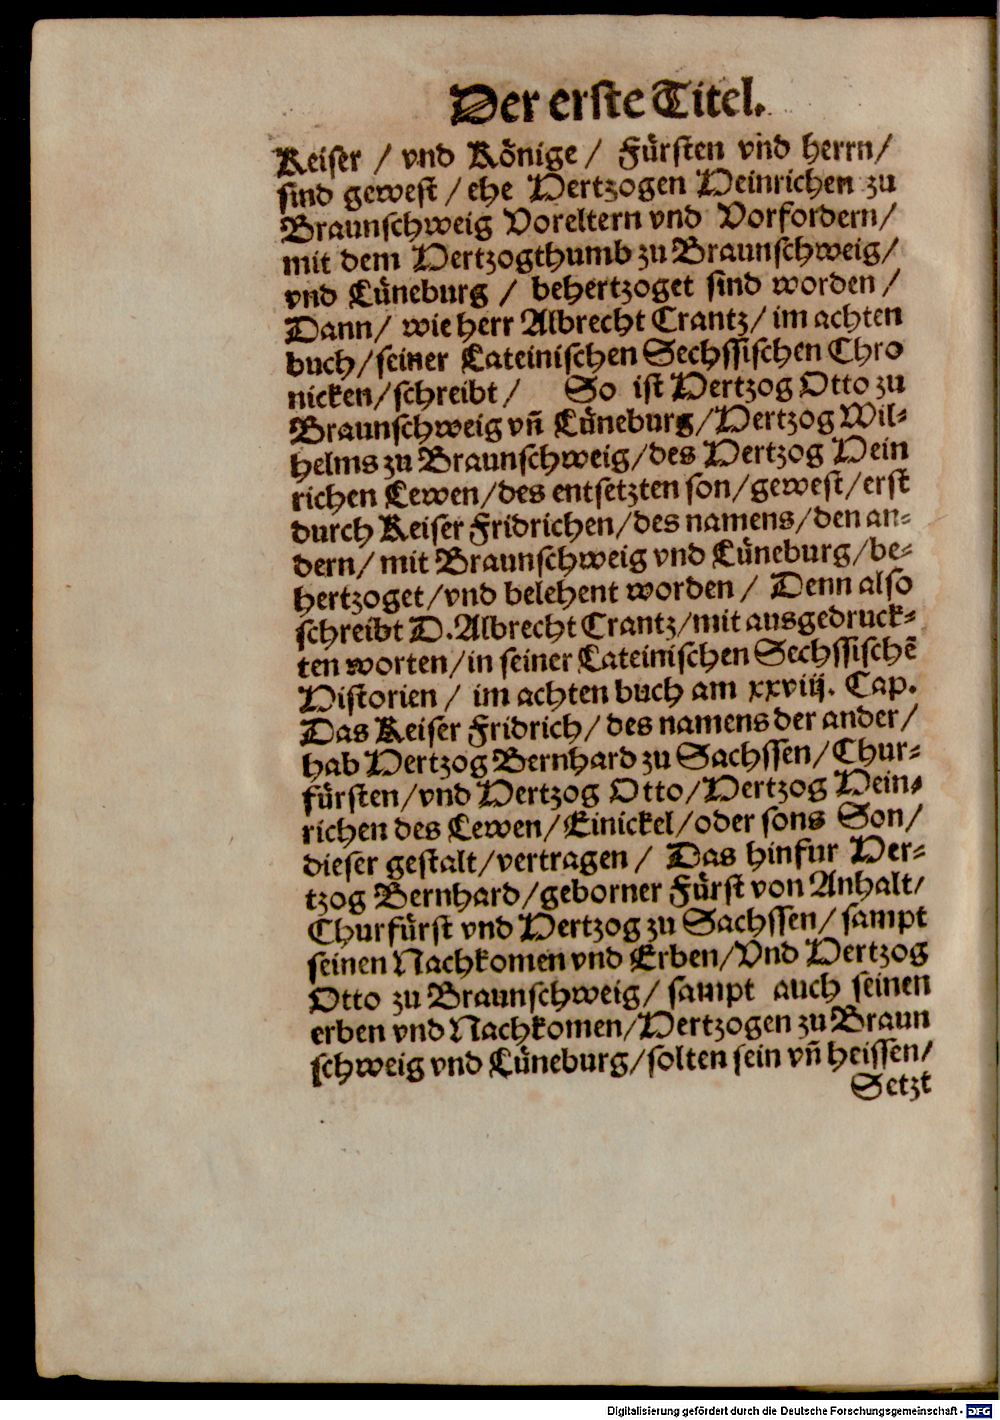 Der erste Titel.
Keiser / vnd Könige / Fürsten vnd herrn/
sind gewest / ehe Hertzogen Heinrichen zu
Braunschweig Voreltern vnd Vorfordern/
mit dem Hertzogthumb zu Braunschweig/
vnd Lüneburg / behertzoget sind worden /
Dann/ wie herr Albrecht Crantz/ im achten
buch/seiner Lateinischen Sechssischen Chro
nicken/schreibt / So ist Hertzog Otto zu
Braunschweig vñ Lüneburg/Hertzog Wil-
helms zu Braunschweig/des Hertzog Hein
richen Lewen/des entsetzten son/gewest/erst
durch Keiser Fridrichen/des namens/den an-
dern/ mit Braunschweig vnd Lüneburg/be-
hertzoget/vnd belehent worden / Denn also
schreibt D.Albrecht Crantz/mit ausgedruck-
ten worten/in seiner Lateinischen Sechssischẽ
Historien / im achten buch am xxviij. Cap.
Das Keiser Fridrich/ des namens der ander/
hab Hertzog Bernhard zu Sachssen/Chur-
fürsten/vnd Hertzog Otto/Hertzog Hein-
richen des Lewen/Einickel/oder sons Son/
dieser gestalt/vertragen / Das hinfur Her-
tzog Bernhard/geborner Fürst von Anhalt/
Churfürst vnd Hertzog zu Sachssen/ sampt
seinen Nachkomen vnd Erben/Vnd Hertzog
Otto zu Braunschweig/ sampt auch seinen
erben vnd Nachkomen/Hertzogen zu Braun
schweig vnd Lüneburg/solten sein vñ heissen/
Setzt
Digitalisierung gefördert durch die Deutsche Forschungsgemeinschaft - DFG